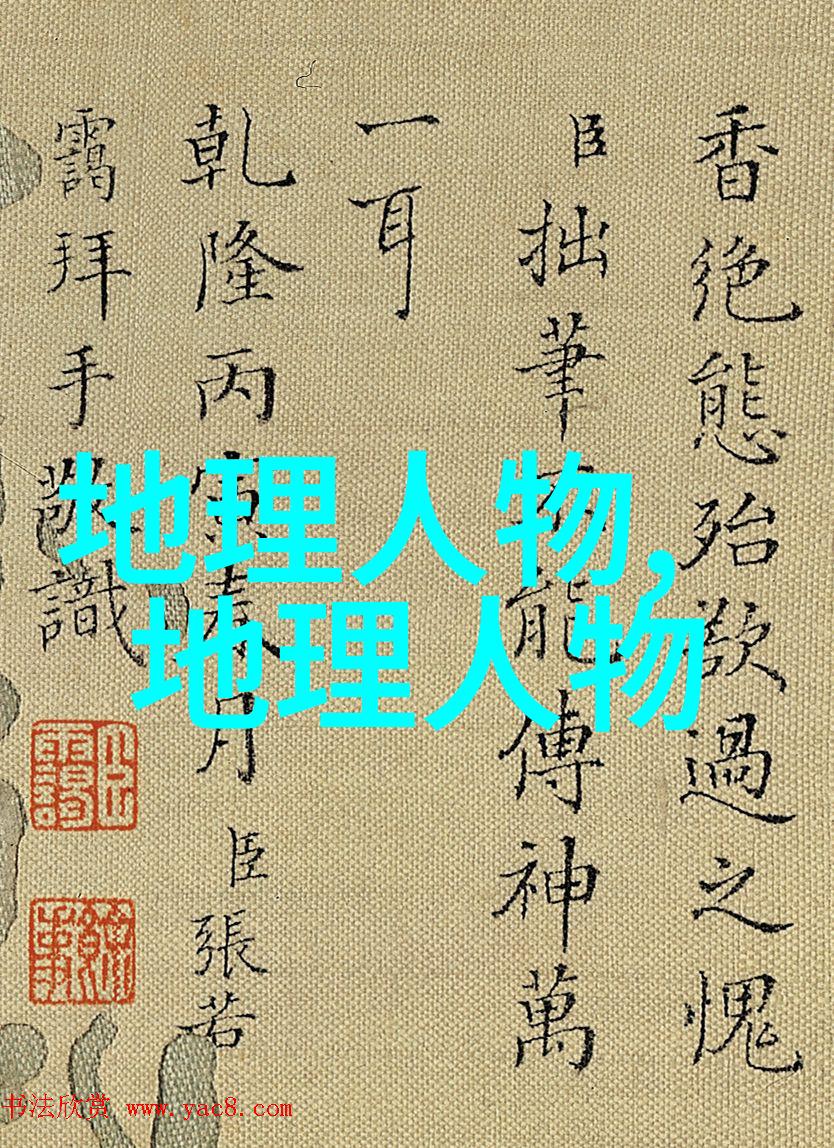 香絶態殆欲過之愧
臣拙筆不能傳神萬
一耳
乾隆丙寅春月臣張若
靄拜手敬識
地理人物,
地理人物
书法欣赏 www.yac8.com